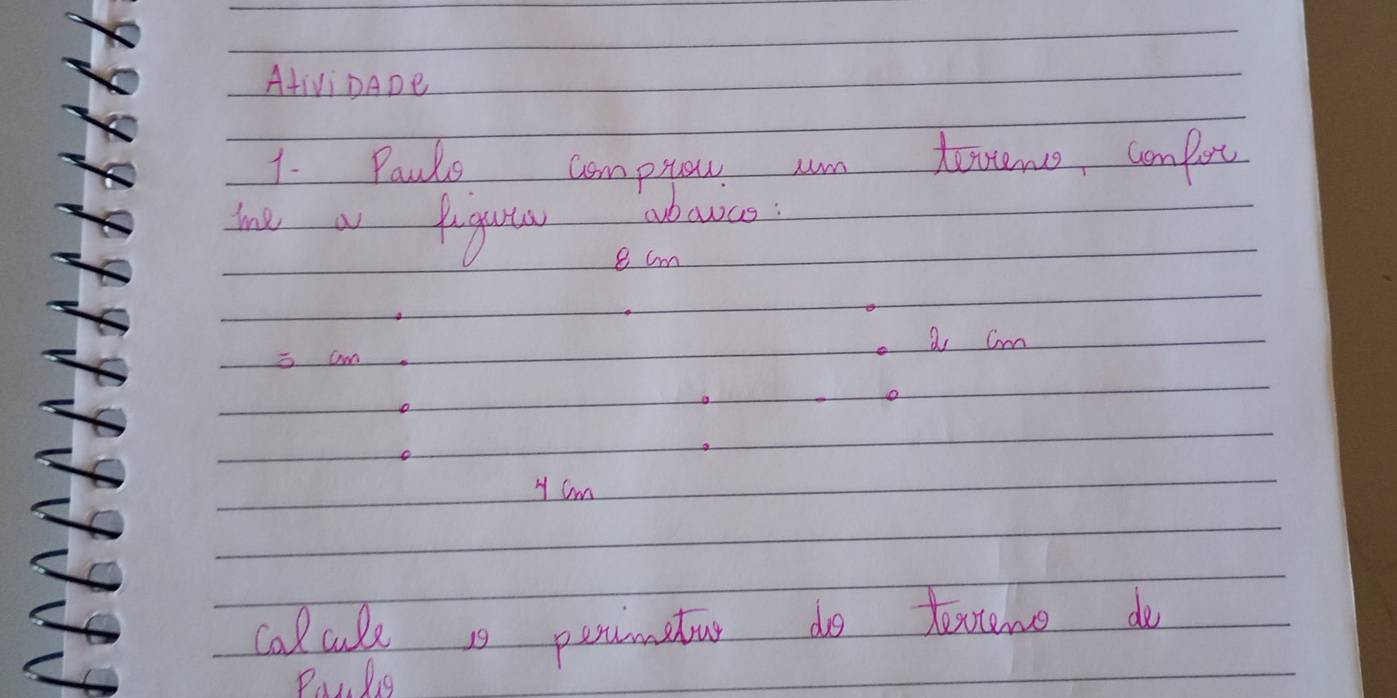 AtiviDADe
1- Paulo comprou um terreno, confor
me a figura abaixo:
8 cm
2 cm
cm
4 cm
Calcule o perimetro do terreno de
Paulo